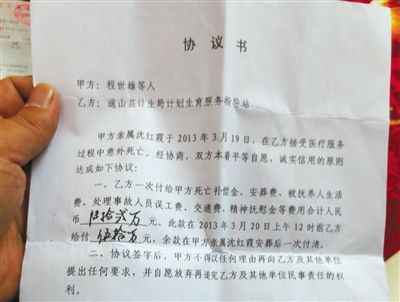 协议书
甲方：程世雄等人
乙方：通山县计生局计划生育服务指导站
甲方亲属沈红霞于 2013 年 3 月 19 日，在乙方接受医疗服务
过程中意外死亡。经协商，双方本着平等自愿，诚实信用的原则
达成如下协议：
一、乙方一次付给甲方死亡补偿金、安葬费、被抚养人生活
费、处理事故人员误工费、交通费、精神抚慰金等费用合计人民
币 伍拾贰万 元，此款在 2013 年 3 月 20 日上午 12 时前乙方
给付 伍拾万 元，余款在甲方亲属沈红霞安葬后一次付清。
二、协议签字后，甲方不得以任何理由再向乙方及其他单位
提出任何要求，并自愿放弃再追究乙方及其他单位民事责任的权
利。